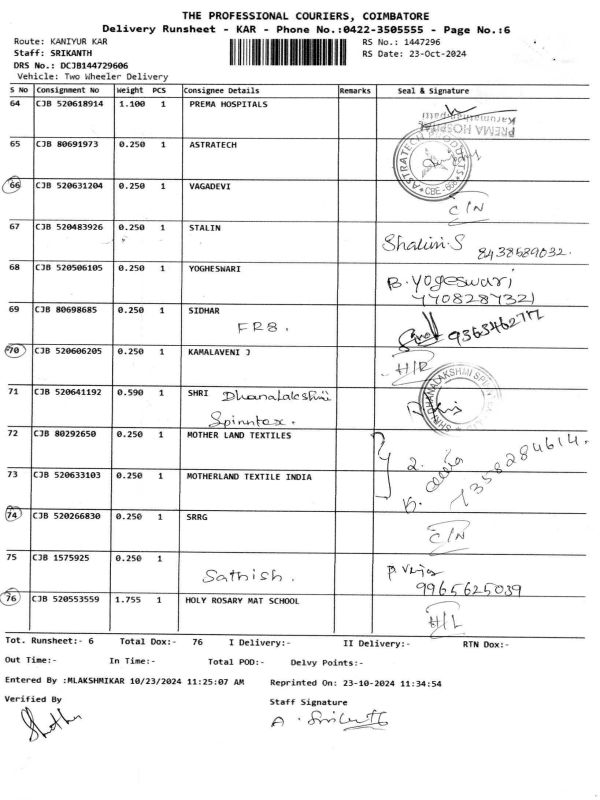 THE PROFESSIONAL COURIERS, COIMBATORE
Delivery Runsheet - KAR - Phone No.:0422-3505555 - Page No.:6
Route: KANIYUR KAR RS No.: 1447296
Staff: SRIKANTH RS Date: 23-Oct-2024
DRS No.: DCJB144729606
Vehicle: Two Wheeler Delivery
S No Consignment No Weight PCS Consignee Details Remarks Seal & Signature
64 CJB 520618914 1.100 1 PREMA HOSPITALS
PREMA HOSPITAL
65 CJB 80691973 0.250 1 ASTRATECH
66 CJB 520631204 0.250 1 VAGADEVI
C/N
67 CJB 520483926 0.250 1 STALIN
Shalini.S 8438589032.
68 CJB 520506105 0.250 1 YOGHESWARI
B. Yogeswari
7708287321
69 CJB 80698685 0.250 1 SIDHAR
FR8. 9363462717
70 CJB 520606205 0.250 1 KAMALAVENI J
H/R
71 CJB 520641192 0.590 1 SHRI Dhanalakshmi
Spinntex.
72 CJB 80292650 0.250 1 MOTHER LAND TEXTILES
2. 7358284614.
73 CJB 520633103 0.250 1 MOTHERLAND TEXTILE INDIA
74 CJB 520266830 0.250 1 SRRG
C/N
75 CJB 1575925 0.250 1
Sathish. P. Vijay
9965625039
76 CJB 520553559 1.755 1 HOLY ROSARY MAT SCHOOL
H/L
Tot. Runsheet:- 6 Total Dox:- 76 I Delivery:- II Delivery:- RTN Dox:-
Out Time:- In Time:- Total POD:- Delvy Points:-
Entered By :MLAKSHMIKAR 10/23/2024 11:25:07 AM Reprinted On: 23-10-2024 11:34:54
Verified By Staff Signature